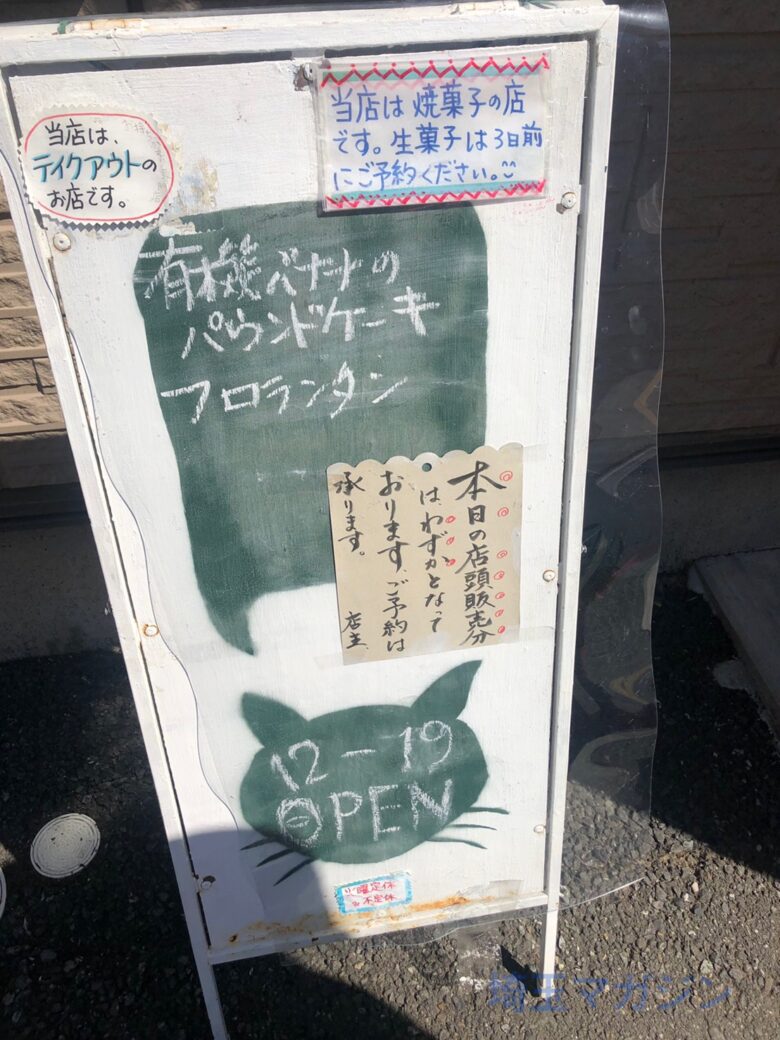 当店は、
テイクアウトの
お店です。
当店は焼菓子の店
です。生菓子は3日前
にご予約ください。
有機バナナの
パウンドケーキ
フロランタン
本日の店頭販売分
は、わずかとなって
おります。ご予約は
承ります。
店主
12-19
OPEN
火曜定休
不定休
埼玉マガジン